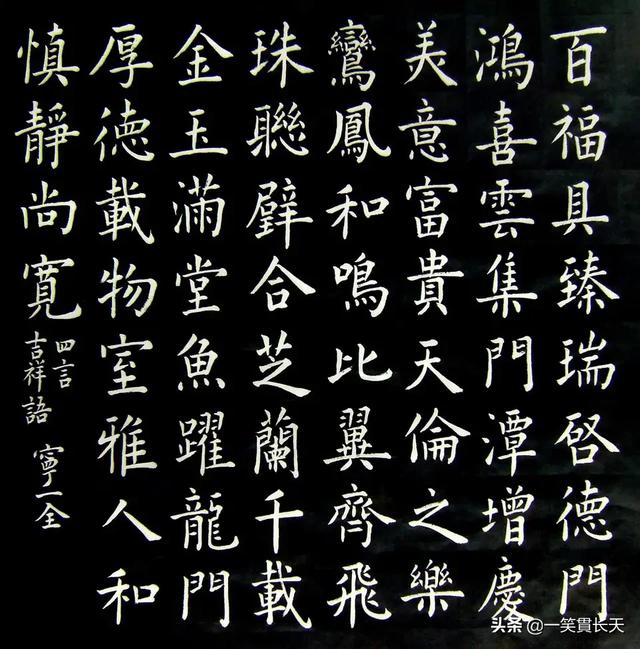 百福具臻瑞啓德門
鴻喜雲集門潭增慶
美意富貴天倫之樂
鸞鳳和鳴比翼齊飛
珠聯璧合芝蘭千載
金玉滿堂魚躍龍門
厚德載物室雅人和
慎靜尚寬
四言
吉祥語
寧一全
头条 @一笑貫长天